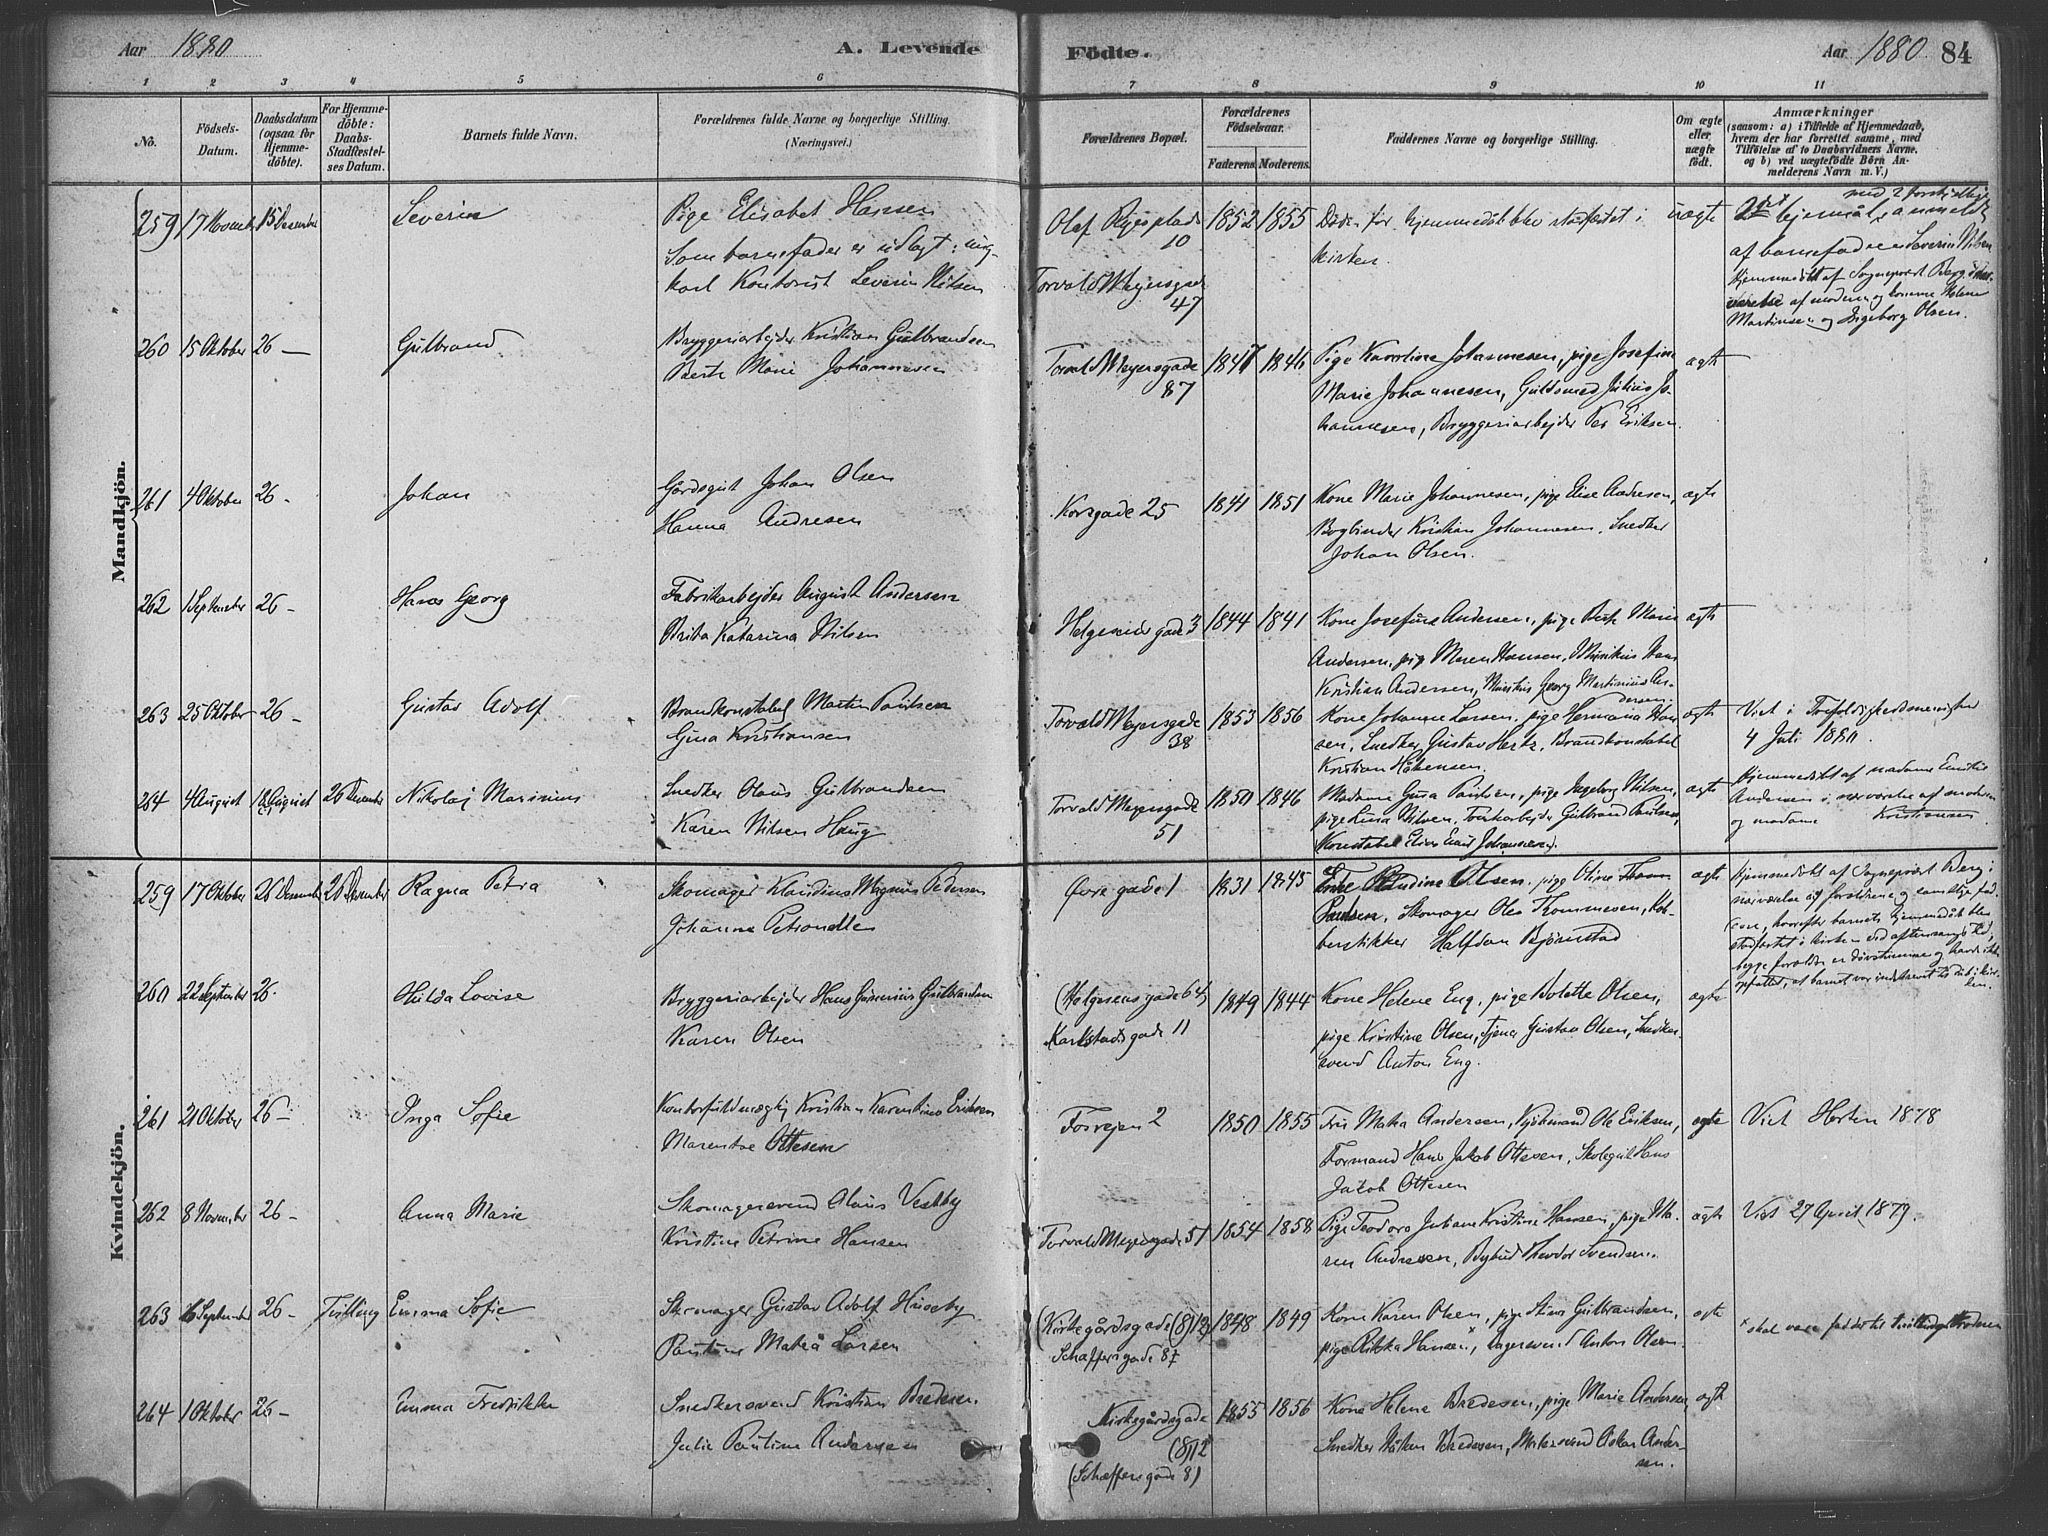 Aar 1880
A. Levende
Födte.
Aar 1880. 84
1 2 3 4 5 6 7 8 9 10 11
No.
Födsels-
Datum.
Daabsdatum
(ogsaa for
Hjemme-
döbte).
For Hjemme-
döbte:
Daabs-
Stadfæstel-
ses Datum.
Barnets fulde Navn.
Forældrenes fulde Navne og borgerlige Stilling.
(Næringsvei.)
Forældrenes Bopæl.
Forældrenes
Födselsaar.
Faderens. Moderens.
Faddernes Navne og borgerlige Stilling.
Om ægte
eller
uægte
födt.
Anmærkninger
(saasom: a) i Tilfælde af Hjemmedaab,
hvem der har forrettet samme, med
Tilföielse af to Daabsvidners Navne,
og b) ved uægtefödte Börn An-
melderens Navn m. V.)
Mandkjön.
259 17 November 15 December Severin
Pige Elisabet Hansen
Som barnefader er udlagt: ung-
karl Kontorist Severin Nilsen
Olaf Ryesplads
10
Torvald Meyersgade
47
1852 1855
Døden før hjemmedåb blev stadfæstet i
kirken.
uægte
med 2 forskjellige
2det lejermål, anmeldt
af barnefaderen Severin Nilsen
Hjemmedøbt af Sogneprest Berg i nær-
værelse af moderen og konerne Helene
Martinsen og Ingeborg Olsen.
260 15 Oktober 26 — Gulbrand
Bryggeriarbejder Kristian Gulbrandsen
Berte Marie Johannesen
Torvald Meyersgade
87
1847 1846
Pige Karoline Johannesen, pige Josefine
Marie Johannesen, Guldsmed Julius Jo-
hannesen, Bryggeriarbejder Per Eriksen.
ægte
261 4 Oktober 26 - Johan
Gårdsgut Johan Olsen
Hanna Andresen
Korsgade 25
1841 1851
Kone Marie Johannesen, pige Elise Andresen,
Bogbinder Kristian Johannesen, Snedker
Johan Olsen.
ægte
262 1 September 26 - Hans Georg
Fabrikarbejder August Andersen
Brita Katarina Nilsen
Helgesens gade 3
1844 1841
Kone Josefine Andersen, pige Berte Marie
Andersen, pige Maren Hansen, Musikus Hans
Kristian Andersen, Musikus Georg Martinius An-
dersen
ægte
263 25 Oktober 26 - Gustav Adolf
Brandkonstabel Martin Paulsen
Gina Kristiansen
Torvald Meyersgade
38
1853 1856
Kone Johanne Larsen, pige Hermana Han-
sen, Snedker Gustav Hertz, Brandkonstabel
Kristian Håkensen.
ægte
Viet i Trefoldighedsmenighed
4 Juli 1880.
264 4 August 12 August 26 December Nikolaj Marinius
Snedker Olaus Gulbrandsen
Karen Nilsen Haug
Torvald Meyersgade
51
1850 1846
Madame Gina Paulsen, pige Ingeborg Nilsen,
pige Lina Nilsen, Fabrikarbejder Gulbrand Paulsen,
Konstabel Johannesen.
ægte
Hjemmedøbt af madame Emilie
Andersen i nærværelse af moderen
og madame Kristiansen
Kvindekjön.
259 17 Oktober 26 December 26 December Ragna Petra
Skomager Klaudius Magnus Pedersen
Johanne Petronelle
Øvregade 1
1831 1845
Olsen, pige Oline
Paulsen, Skomager Ole Trommesen, Kob-
berstikker Halfdan Bjørnstad
ægte
Hjemmedøbt af Sogneprest Berg i
nærværelse af forældrene og samtlige fad-
dere, hvorefter barnets hjemmedåb blev
stadfæstet i kirken ved aftensangstid,
begge forældre er døvstumme og havde ikke
opfattet, at barnet var indskrevet til dåb i kir-
ken.
260 22 September 26. Hilda Lovise
Bryggeriarbejder Hans Gulbrandsen
Karen Olsen
(Helgesens gade 64)
Karlstadsgade 11
1849 1844
Kone Helene Eng, pige Bolette Olsen,
pige Kristine Olsen, Tjener Gustav Olsen, Snedker-
svend Anton Eng.
ægte
261 21 Oktober 26 - Inga Sofie
Kontorfuldmægtig Kristian Karentinus Eriksen
Marentse Ottesen
Fosvejen 2
1850 1855
Frk Matea Andersen, Kjøbmand Ole Eriksen,
Formand Hans Jakob Ottesen, Skolegut Hans
Jakob Ottesen
ægte
Viet Horten 1878
262 8 November 26 - Anna Marie
Skomagersvend Olaus Vestby
Kristine Petrine Hansen
Torvald Meyersgade 51
1854 1858
Pige Teodora Juliane Kristine Hansen, pige Ma-
ren Andresen, Bybud Theodor Svendsen.
ægte
Viet 27 April 1879.
263 16 September 26 - Tvilling Emma Sofie
Skomager Gustav Adolf Huseby
Pauline Matea Larsen
(Kirkegårdsgade (8) 12)
Schæffersgade 87
1848 1849
Kone Karen Olsen, pige Stina Gulbrandsen,
pige Rikka Hansen x, Anton Olsen
ægte
x skal være fadder til tvillingbroderen
264 1 Oktober 26 - Emma Fredrikke
Snedkersvend Kristian Bredesen.
Julie Pauline Andersen
Kirkegårdsgade
(8) 12
(Schæffersgade 8)
1855 1856
Kone Helene Bredesen, pige Marie Andersen
Snedker Håken Bredesen, Malersvend Oskar Ander-
sen.
ægte